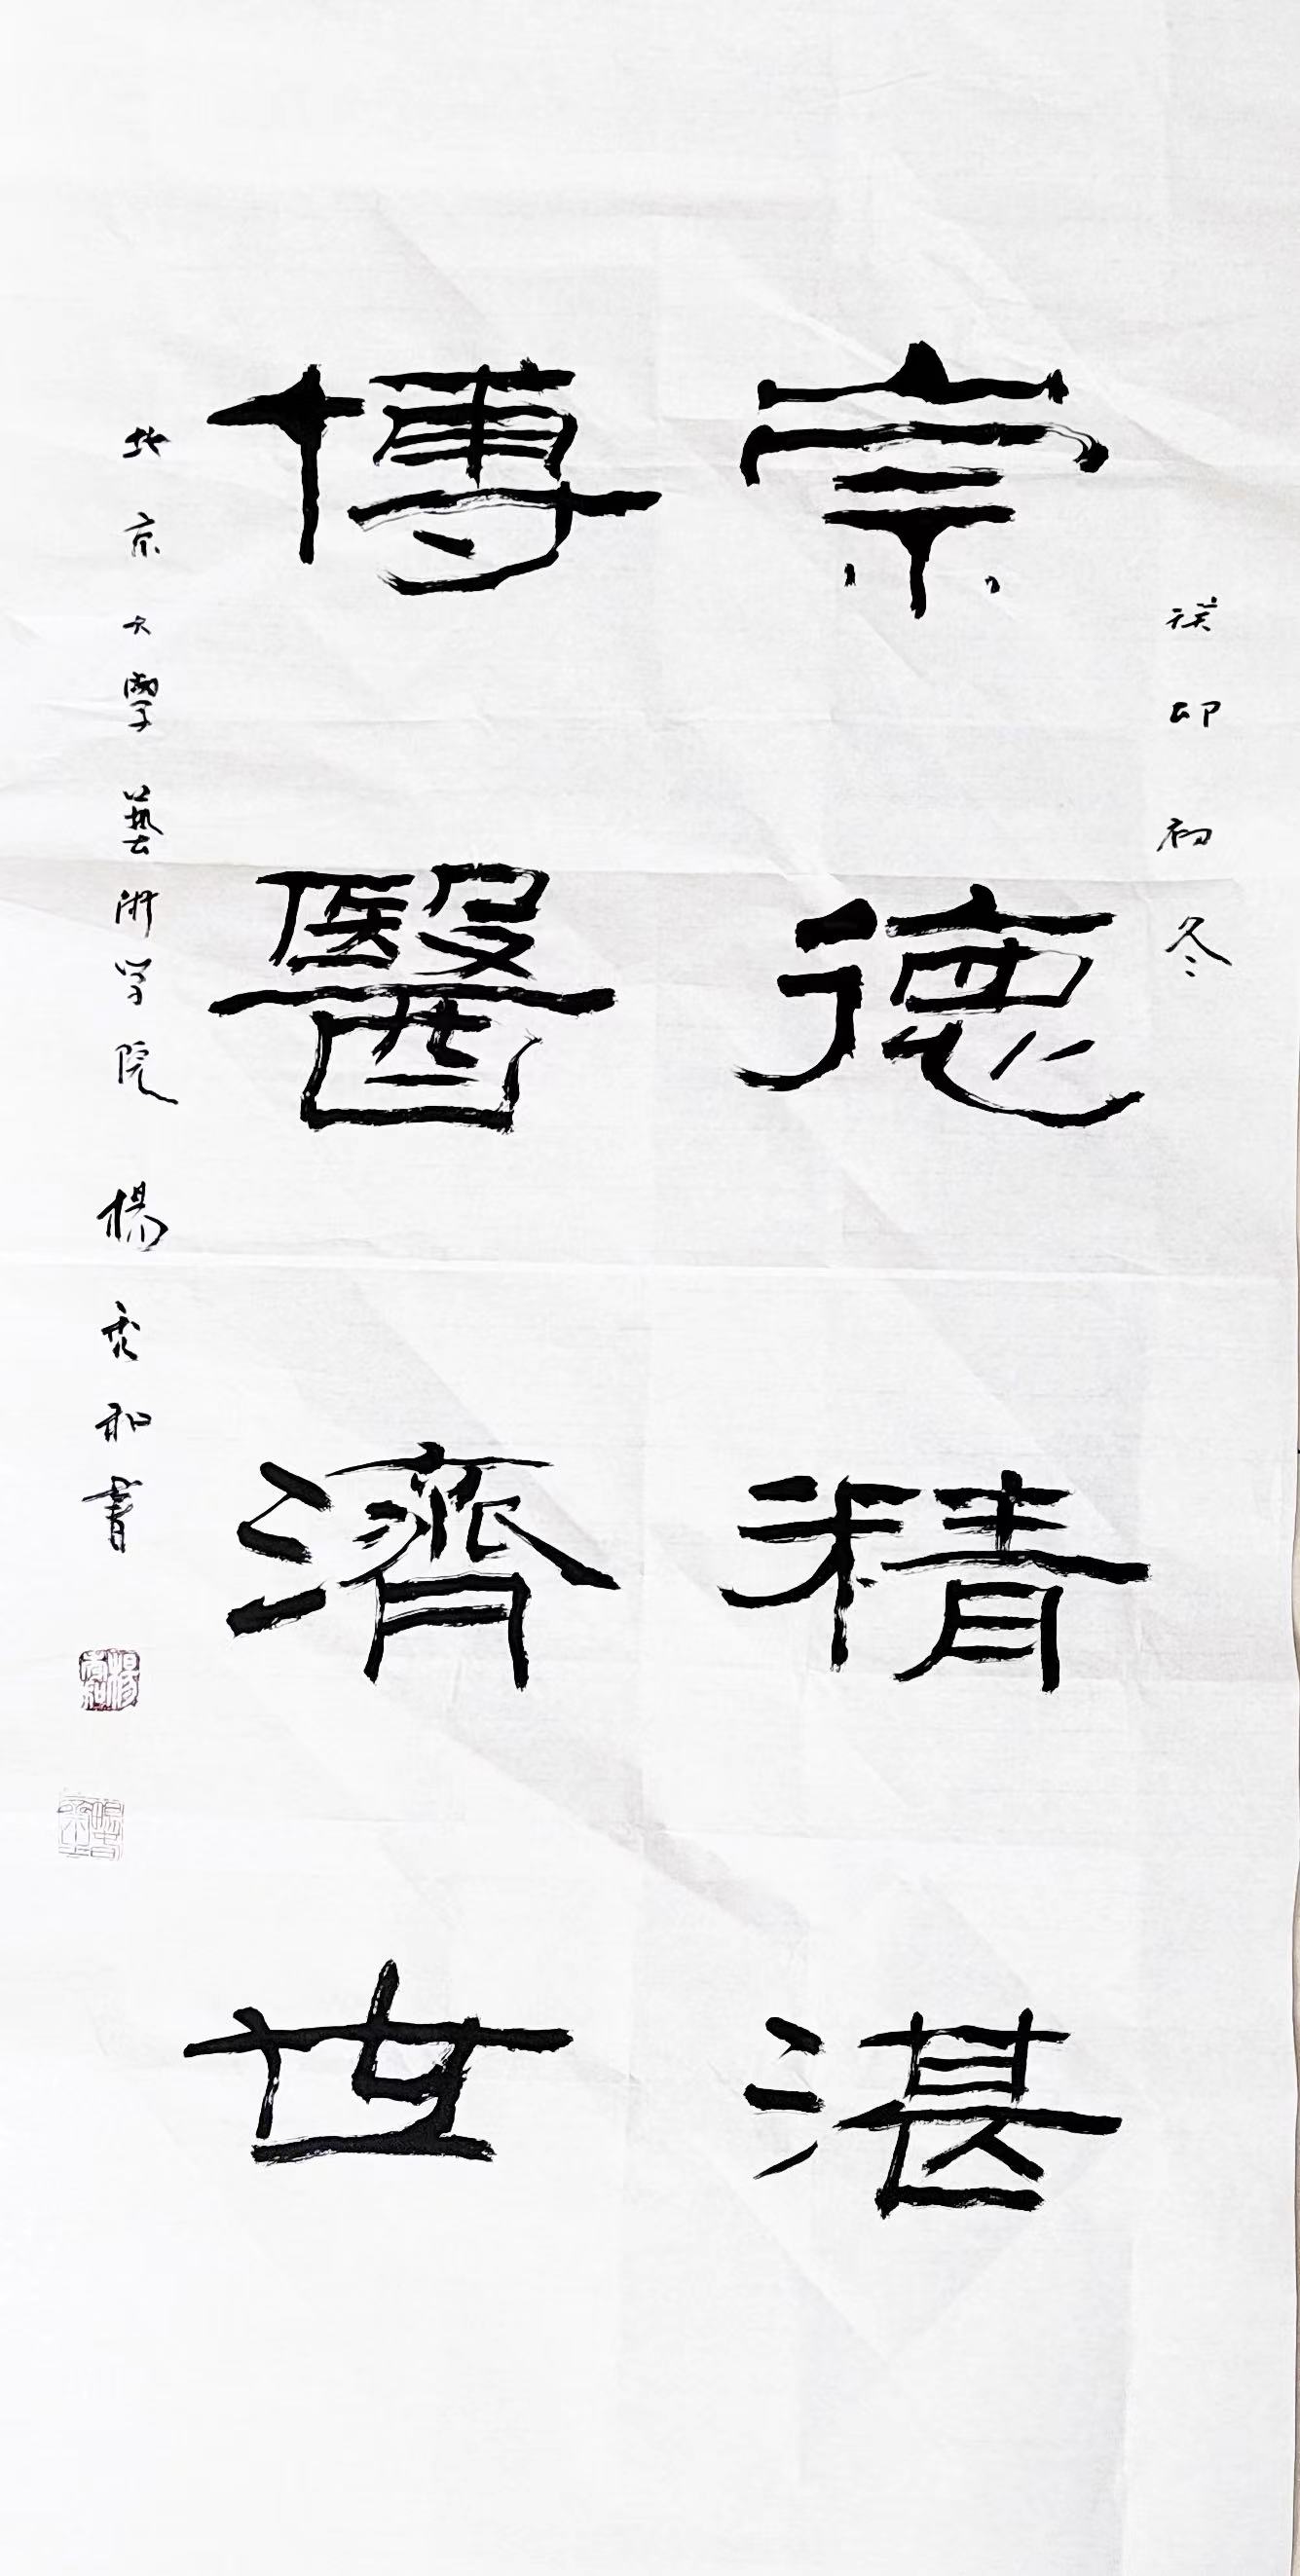 癸卯初冬
宗德精湛
博醫濟世
北京大學藝術学院 楊秀和書